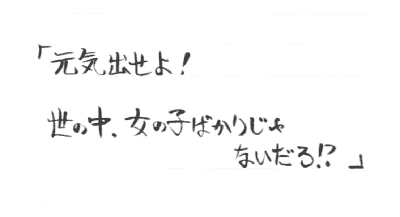 「元気出せよ!
世の中、女の子ばかりじゃ
ないだろ!?」